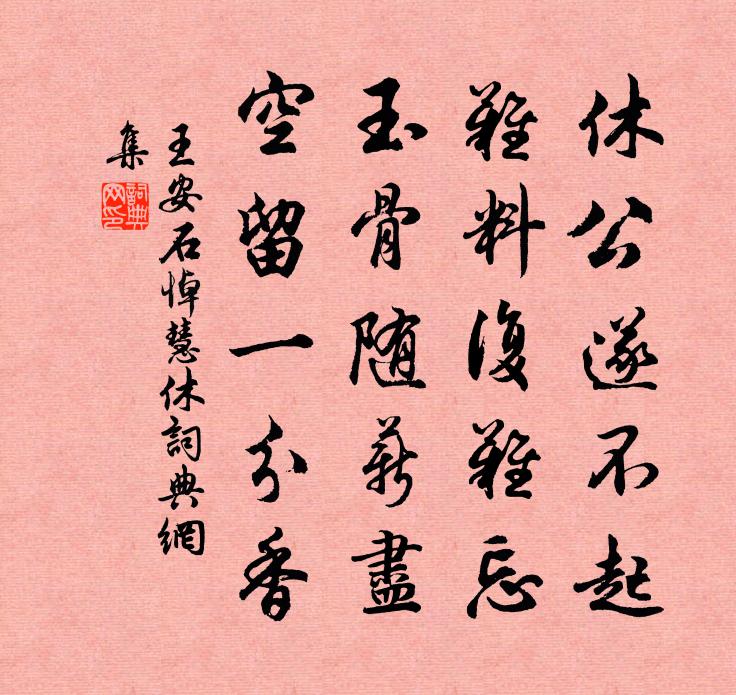 休公遂不起
難料復難忘
玉骨随薪盡
空留一分香
王安石悼慧休詞典網
集
詞典
网印